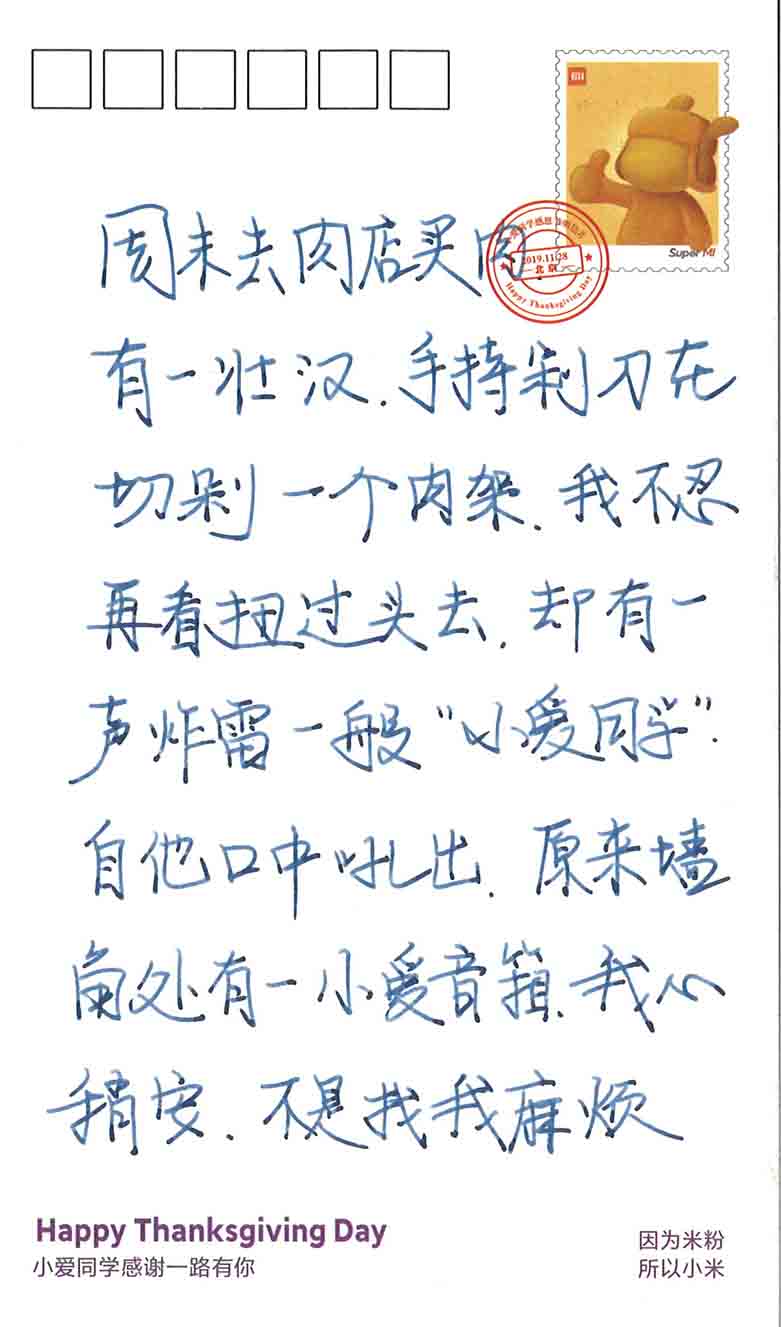 Super MI
2019.11.28
北京
Happy Thanksgiving Day
周末去肉店买肉
有一壮汉.手持剁刀在
切剁一个肉架.我不忍
再看扭过头去.却有一
声炸雷一般“小爱同学”.
自他口中吼出.原来墙
角处有一小爱音箱.我心
稍安.不是找我麻烦
Happy Thanksgiving Day
小爱同学感谢一路有你
因为米粉
所以小米